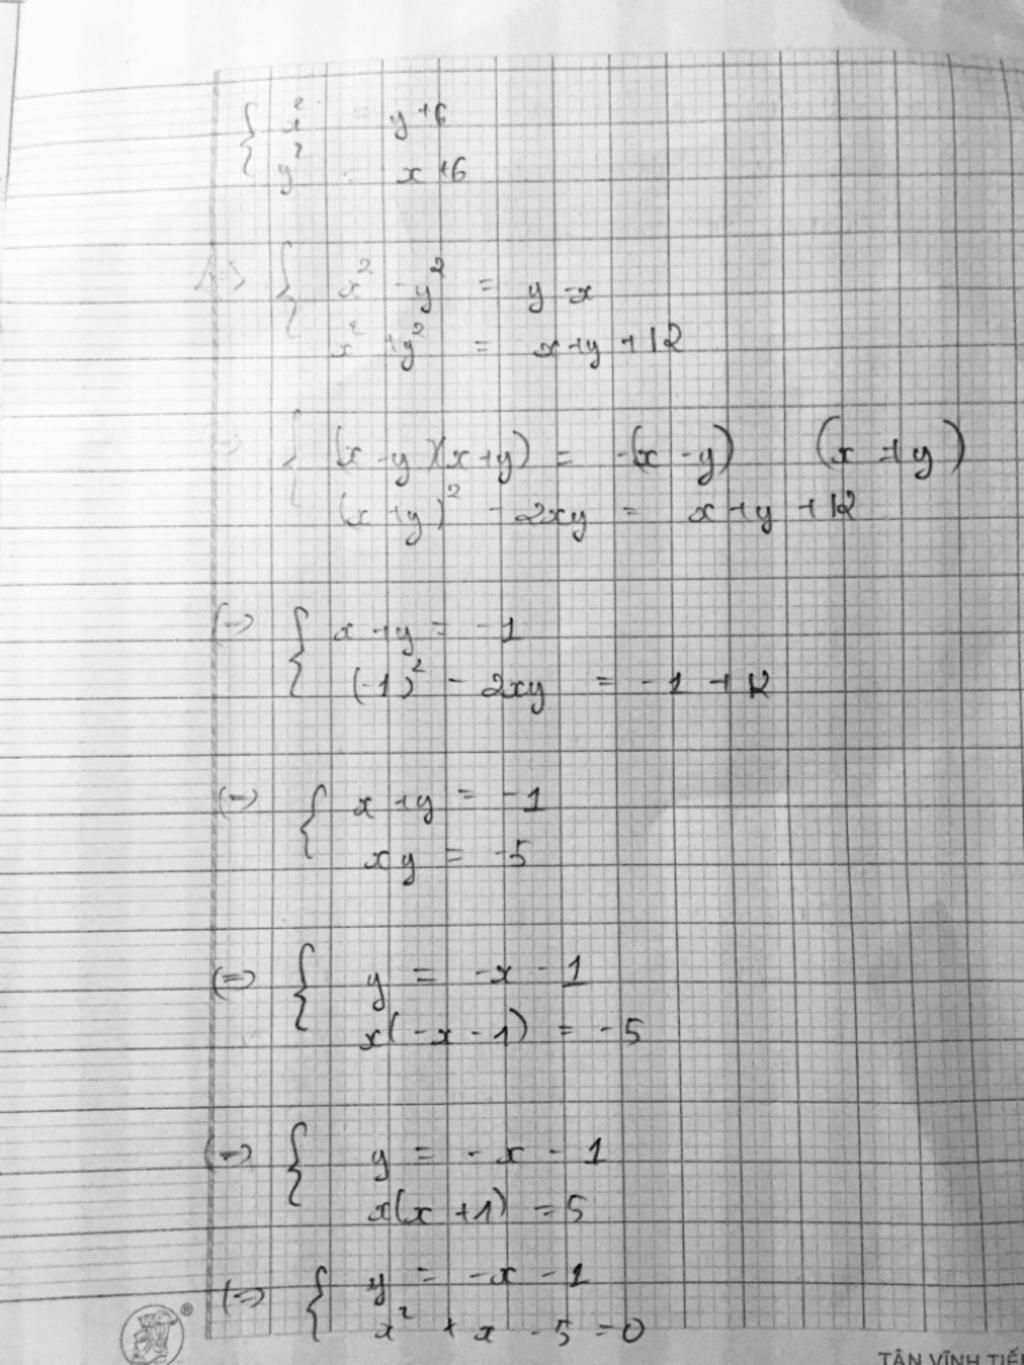 { x² = y + 6
y² = x + 6
(=) { x² - y² = y - x
x² + y² = x + y + 12
(=) { (x - y)(x + y) = -(x - y) (x ≠ y)
(x + y)² - 2xy = x + y + 12
(=) { x + y = -1
(-1)² - 2xy = -1 + 12
(=) { x + y = -1
xy = -5
(=) { y = -x - 1
x(-x - 1) = -5
(=) { y = -x - 1
x(x + 1) = 5
(=) { y = -x - 1
x² + x - 5 = 0
®
TÂN VĨNH TIẾ